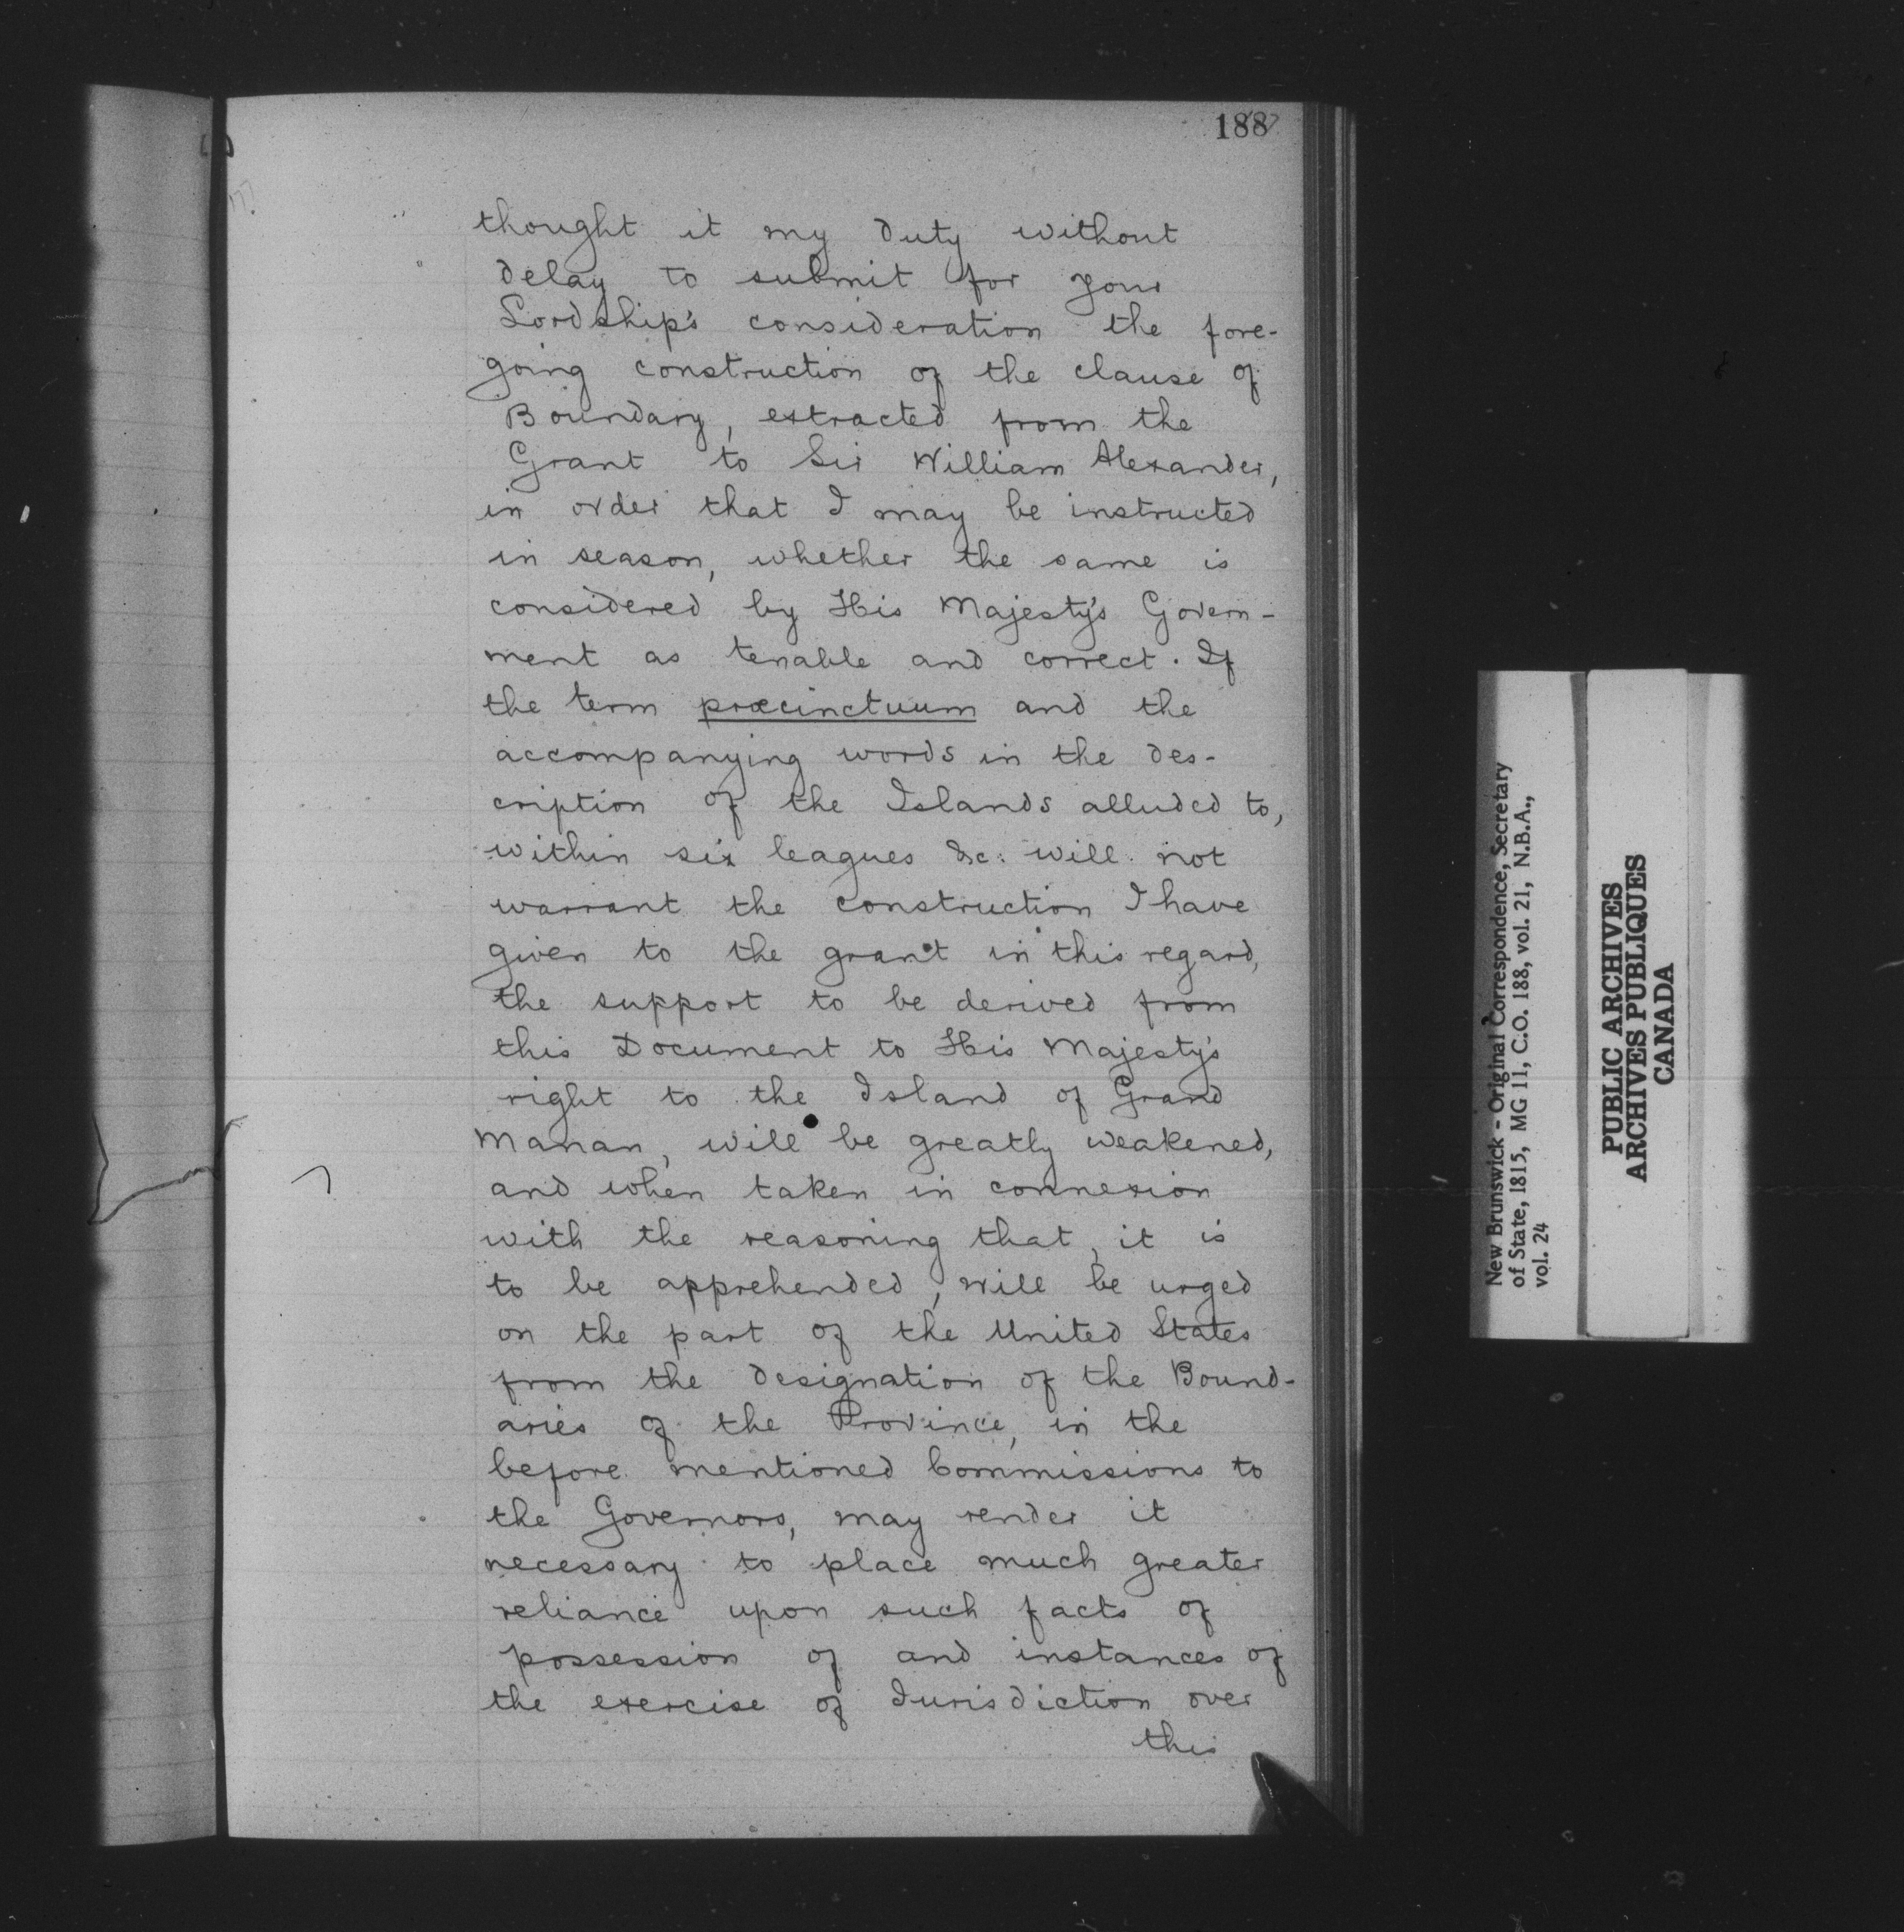 188
thought it my duty without
delay to submit for your
Lordship's consideration the fore-
going construction of the clause of
Boundary, extracted from the
Grant to Sir William Alexander,
in order that I may be instructed
in season, whether the same is
considered by His Majesty's Govern-
ment as tenable and correct. If
the term præcinctuum and the
accompanying words in the des-
cription of the Islands alluded to,
within six leagues &c: will not
warrant the construction I have
given to the grant in this regard,
the support to be derived from
this Document to His Majesty's
right to the Island of Grand
Manan, will be greatly weakened,
and when taken in connexion
with the reasoning that, it is
to be apprehended, will be urged
on the part of the United States
from the designation of the Bound-
aries of the Province, in the
before mentioned Commissions to
the Governors, may render it
necessary to place much greater
reliance upon such facts of
possession of and instances of
the exercise of Jurisdiction over
this
New Brunswick - Original Correspondence, Secretary
of State, 1815, MG 11, C.O. 188, vol. 21, N.B.A.,
vol. 24
PUBLIC ARCHIVES
ARCHIVES PUBLIQUES
CANADA